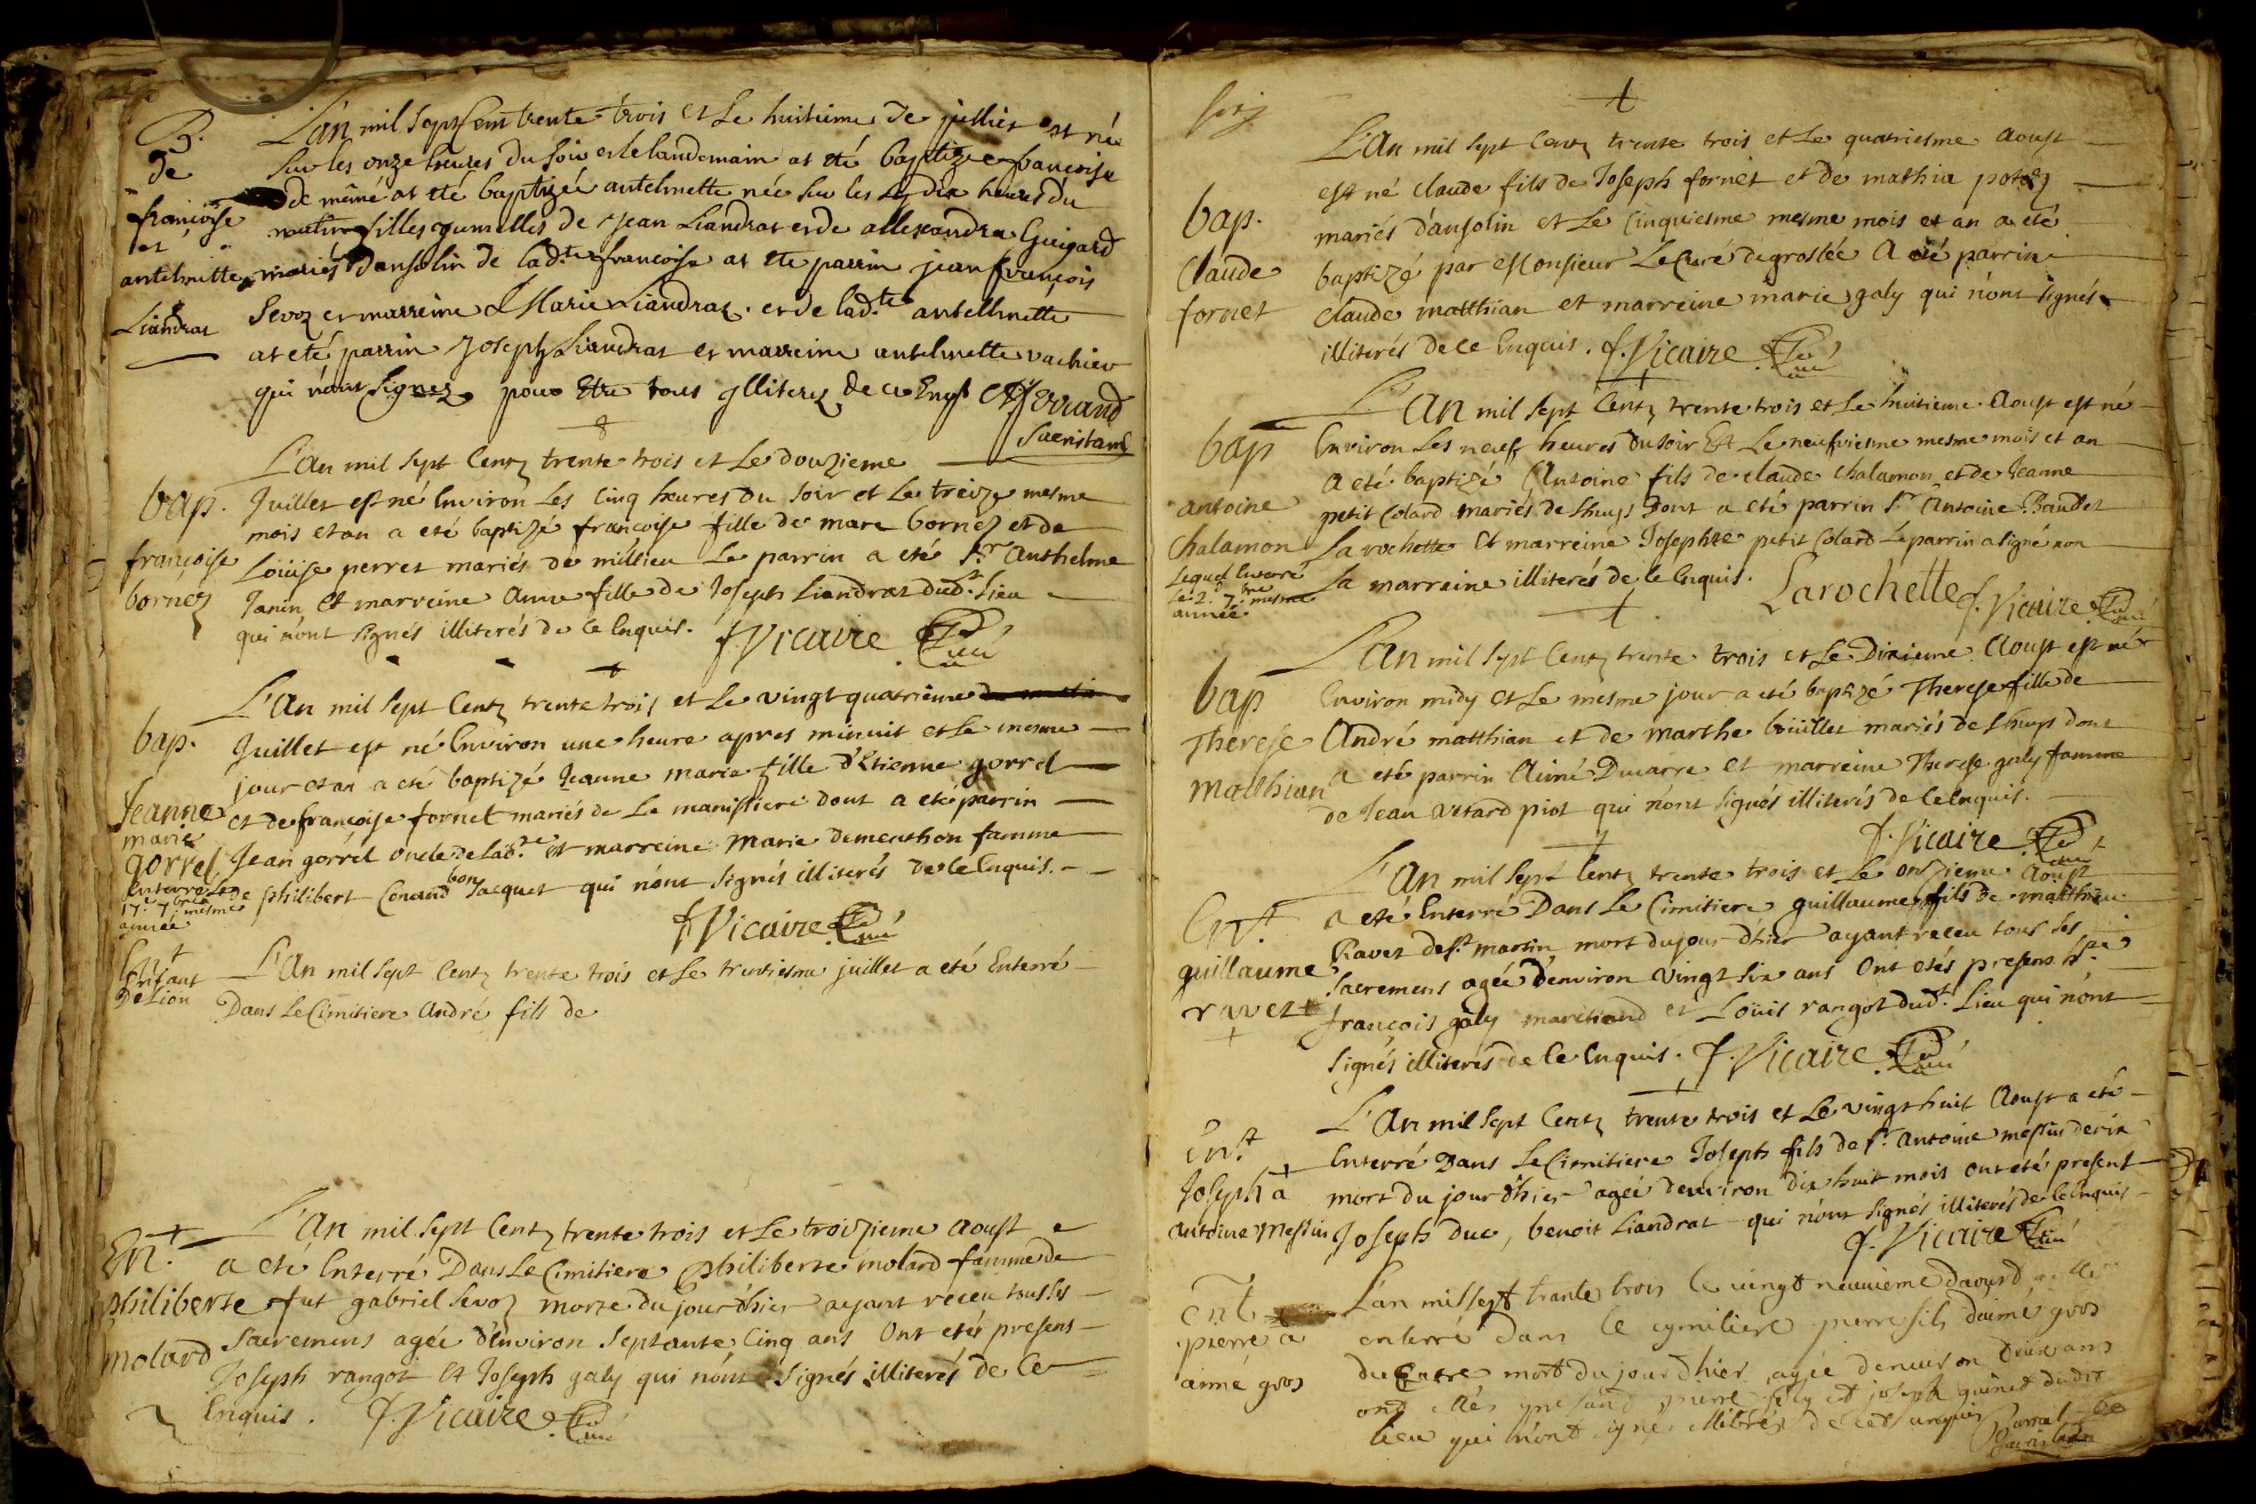 B.
de
françoise
et
antelmette
Liandrat
L'an mil sept cent trente trois et Le huitieme de juillet est né
sur les onze heures du soir et le landemain at eté baptizee francoise
de même at eté baptizée antelmette née sur les dix heures du
matin filles gumelles de Jean Liandrat et de allexandra Guigard
mariés d'ansolin de lad.te francoise at ete parrin jean francois
Sevoz et marreine Marie Liandraz. et de lad.te antelmette
at eté parrin Joseph Liandrat et marreine antelmette vachier
qui n'ont signez pour Etre tous illiterez de ce Enq.s Ferrand
Sacristain
bap.
françoise
bornez
L'an mil sept Centz trente trois et Le douzieme
Juillet est né Environ Les cinq heures du soir et Le treize mesme
mois et an a eté baptizé francoise fille de marc bornez et de
Loüise perret mariés de millieu Le parrin a eté S.r Anthelme
Janin Et marreine Anne fille de Joseph Liandrat dud.t Lieu
qui n'ont signés illiterés de ce Enquis. f. Vicaire Curé
bap.
Jeanne
marie
gorrel
Enterré Le
17.e 7.bre mesme
année
L'an mil sept Centz trente trois et Le vingt quatrieme
Juillet est né Environ une heure apres minuit et Le mesme
jour et an a eté baptizé Jeanne marie fille d'Etienne gorrel
et de françoise fornet mariés de Le manissiere dont a eté parrin
Jean gorrel oncle de Lad.te et marreine Marie dementhon famme
de philibert Conand bon Jacquet qui n'ont signés illiterés de ce Enquis.
f. Vicaire Curé
En.t
Enfant
de Lion
L'an mil sept Centz trente trois et Le trentiesme juillet a eté Enterré
Dans Le Cimitiere André fils de
En.t
philiberte
molard
L'an mil sept Centz trente trois et Le troizieme aoust
a eté Enterré Dans Le Cimitiere philiberte molard famme de
fut gabriel Sevoz morte du jour d'hier ayant receu tous Ses
sacremens agée d'Environ Septante Cinq ans Ont etés presens
Joseph rangot Et Joseph galy qui n'ont signés illiterés de Ce
Enquis. f. Vicaire Curé
bap.
Claude
fornet
L'An mil sept Centz trente trois et Le quatriesme aoust
est né Claude fils de Joseph fornet et de mathia
mariés d'ansolin et Le Cinquiesme mesme mois et an a eté
baptizé par Monsieur Le Curé de groslée A eté parrin
Claude matthian et marreine marie galy qui n'ont signés
illiterés de ce Enquis. f. Vicaire Curé
bap
antoine
Chalamon
Lequel Enterré
Le 2. 7.bre mesme
année
L'An mil sept Centz trente trois et Le huitieme Aoust est né
Environ Les neuf heures du soir Et Le neufviesme mesme mois et an
A eté baptizé Antoine fils de claude chalamon et de Jeanne
petit Colard mariés de Lhuys dont a eté parrin S.r Antoine Baudet
La rochette Et marreine Josephte petit Colard Le parrin a signé non
La marreine illiterés de ce Enquis. Larochette f. Vicaire Curé
bap
Therese
Matthian
L'An mil sept Centz trente trois et Le Dixieme Aoust est né
Environ midy et Le mesme jour a eté baptizé Therese fille de
André matthian et de marthe boüillet mariés de Lhuys dont
a eté parrin Aimé Ducarre et marreine Therese galy famme
de Jean Vetard piot qui n'ont signés illiterés de Ce Enquis.
f. Vicaire Curé
En.t
guillaume
ravet
L'An mil sept Centz trente trois et Le onzieme Aoust
a eté Enterré Dans Le Cimitiere guillaume fils de matthieu
Ravet de S.t martin mort du jour d'hier ayant receu tous ses
sacremens agée d'environ vingt six ans Ont etés presens
françois galy marchand et Loüis rangot dud.t Lieu qui n'ont
signés illiterés de Ce Enquis. f. Vicaire Curé
En.t
Joseph a
Antoine Messin
L'An mil sept Centz trente trois et Le vingt huit Aoust a eté
Enterré Dans Le Cimitiere Joseph fils de S.r antoine messin derix
mort du jour d'hier agée d'environ dix huit mois ont eté present
Joseph Duc, benoit Liandrat qui n'ont signés illiterés de Ce Enquis
f. Vicaire Curé
Ent
pierre a
aimé gros
L'an mil sept trante trois le vingt neuvieme d'aoust
enterré dans le cymitiere pierre fils d'aimé gros
du mort du jour d'hier agée d'environ deux ans
ont etés presand pierre et joseph guinet dudit
lieu qui n'ont signés illiterés de ce enquis